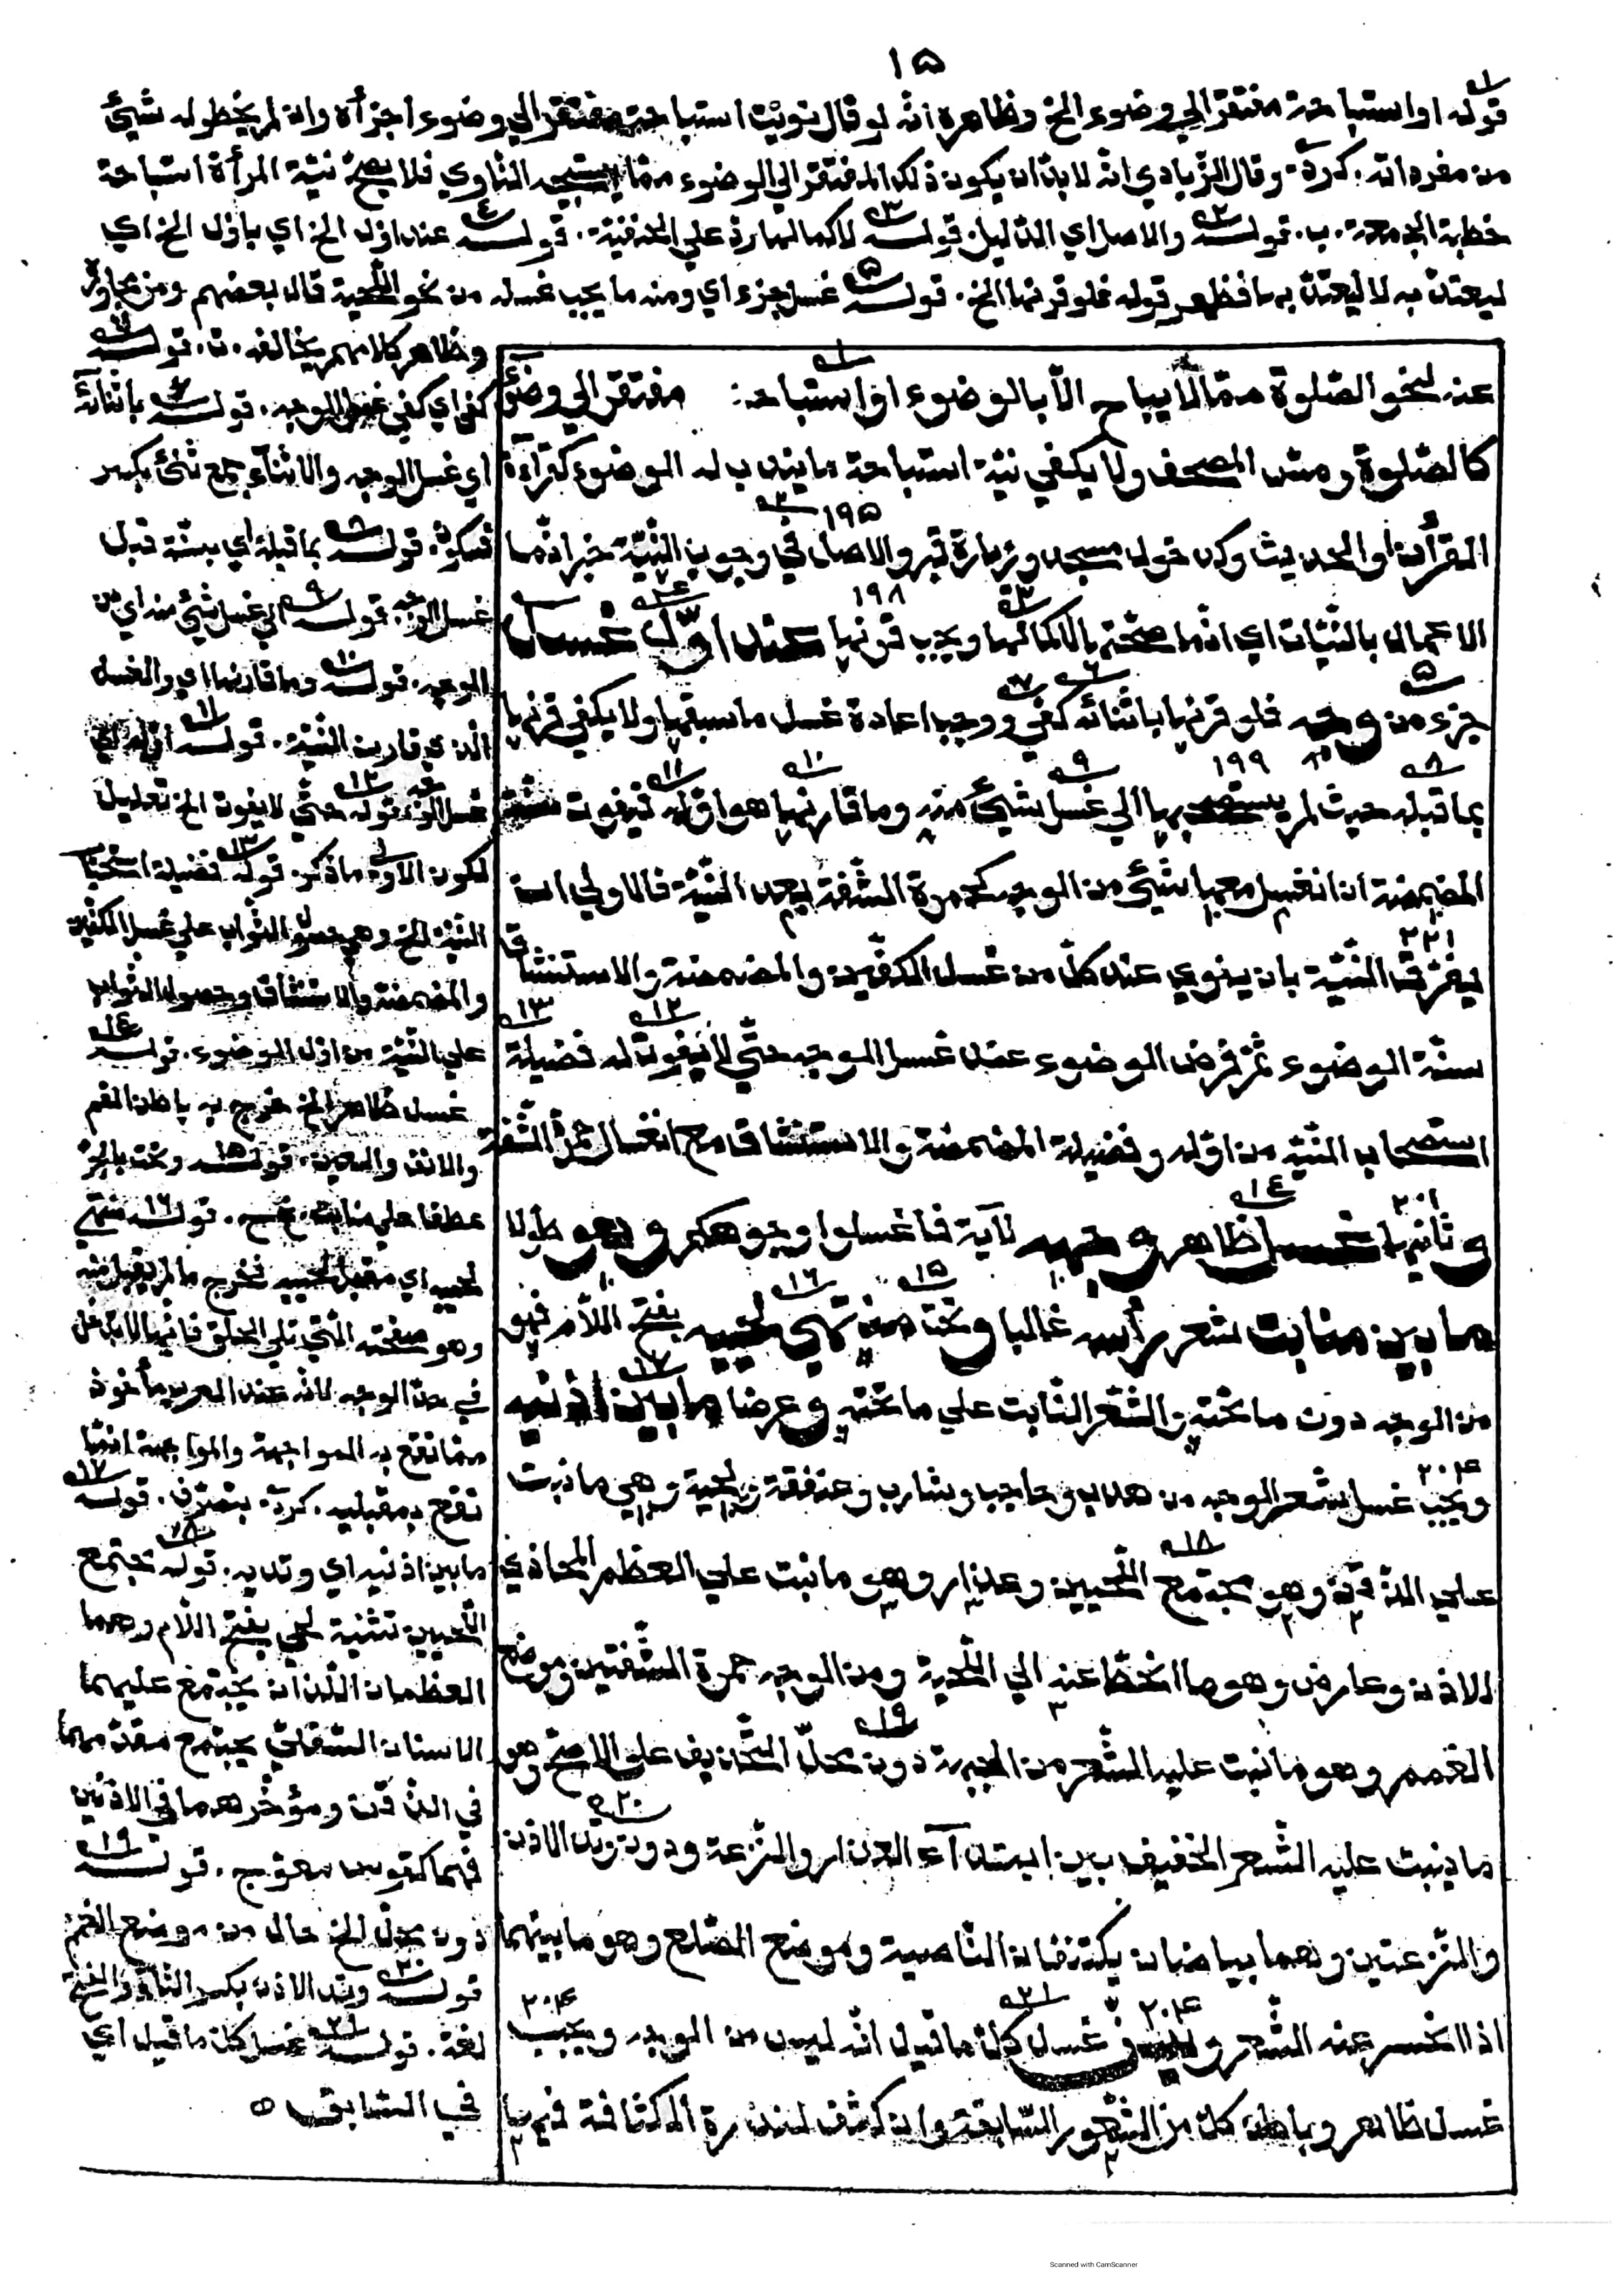 ١٥
قوله او استباحة مفتقر الي وضوء الخ وظاهره انه لو قال نويت استباحة مفتقر الي وضوء اجزأه وان لم يخطر له شيئ
من مفرداته . كردي . وقال الزيادي انه لا بد ان يكون ذلك المفتقر الي الوضوء مما يستبيحه الناوي فلا يصح نية المرأة استباحة
خطبة الجمعة . ب . قوله والاصل اي الدليل . قوله لا كمالها رد علي الحنفية . قوله عند اول الخ اي باول الخ اي
ليعتد به لا ليعتد بها فظهر قوله فلو قرنها الخ . قوله غسل جزء اي ومنه ما يجب غسله من نحو اللحية قال بعضهم ومن مجاور
وظاهر كلامهم يخالفه . ت . قوله
كفي اي كفي غسل الوجه . قوله باثنائه
اي غسل الوجه والاثناء جمع ثنئ بكسر
فسكون . قوله بما قبله اي بسنة قبل
غسل الوجه . قوله الي غسل شيئ منه اي من
الوجه . قوله وما قارنها اي والغسل
الذي قارن النية . قوله اوله اي
غسل الوجه قوله حتي لا يفوت الخ تعليل
لكون الاولي ما ذكر . قوله فضيلة استصحاب
النية الخ وهي حصول الثواب علي غسل الكفين
والمضمضة والاستنشاق وحصول الثواب
علي النية من اول الوضوء . قوله
غسل ظاهر الخ خرج به باطن الفم
والانف والعين . قوله وتحت بالجر
عطفا علي منابت . قوله منتهي
لحييه اي مقبل لحييه فخرج ما لم يقبل منه
وهو صفحته التي تلي الحلق فانها لا تدخل
في حد الوجه لانه عند العرب مأخوذ
مما تقع به المواجهة والمواجهة انما
تقع بمقبليه . كردي . بتصرف . قوله
ما بين اذنيه اي وتديه . قوله مجتمع
اللحيين تثنية لحي بفتح اللام وهما
العظمان اللذان يجتمع عليهما
الاسنان السفلي يجتمع مقدمهما
في الذقن ومؤخرهما في الاذنين
فهما كقوس معوج . قوله
دون محل الخ حال من موضع الغمم
قوله وتد الاذن بكسر التاء والفتح
لغة . قوله غسل كل ما قيل اي
في السابق ٥
عنه لنحو الصلوة مما لا يباح الا بالوضوء او استباحة مفتقر الي وضوء
كالصلوة ومس المصحف ولا يكفي نية استباحة ما يندب له الوضوء كقراءة
القرآن او الحديث وكدخول مسجد وزيارة قبر والاصل في وجوب النية خبر انما
الاعمال بالنيات اي انما صحتها لا كمالها ويجب قرنها عند اول غسل
جزء من وجه فلو قرنها باثنائه كفي ووجب اعادة غسل ما سبقها ولا يكفي قرنها
بما قبله حيث لم يستصحبها الي غسل شيئ منه وما قارنها هو اوله فتفوت سنة
المضمضة ان انغسل معها شيئ من الوجه كحمرة الشفة بعد النية فالاولي ان
يفرق النية بان ينوي عند كل من غسل الكفين والمضمضة والاستنشاق
سنة الوضوء ثم فرض الوضوء عند غسل الوجه حتي لا تفوت له فضيلة
استصحاب النية من اوله وفضيلة المضمضة والاستنشاق مع انغسال حمرة الشفة
و ثانيها غسل ظاهر وجهه لآية فاغسلوا وجوهكم وهو طولا
ما بين منابت شعر رأسه غالبا وتحت منتهي لحييه بفتح اللام فهو
من الوجه دون ما تحته والشعر النابت علي ما تحته وعرضا ما بين اذنيه
ويجب غسل شعر الوجه من هدب وحاجب وشارب وعنفقة ولحية وهي ما نبت
علي الذقن وهو مجتمع اللحيين وعذار وهو ما نبت علي العظم المحاذي
للاذن وعارض وهو ما انحط عنه الي اللحية ومن الوجه حمرة الشفتين وموضع
الغمم وهو ما نبت عليه الشعر من الجبهة دون محل التحذيف علي الاصح وهو
ما ينبت عليه الشعر الخفيف بين ابتداء العذار والنزعة ودون وتد الاذن
والنزعتين وهما بياضان يكتنفان الناصية وموضع الصلع وهو ما بينهما
اذا انحسر عنه الشعر و غسل كل ما قيل انه ليس من الوجه ويجب
غسل ظاهر وباطن كل من الشعور السابقة وان كثف لندرة الكثافة فيها
Scanned with CamScanner